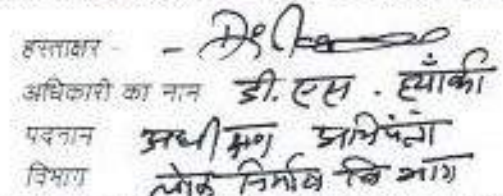 हस्ताक्षर -
अधिकारी का नाम डी. एस. ह्याँकी
पदनाम अधीक्षण अभियंता
विभाग लोक निर्माण विभाग